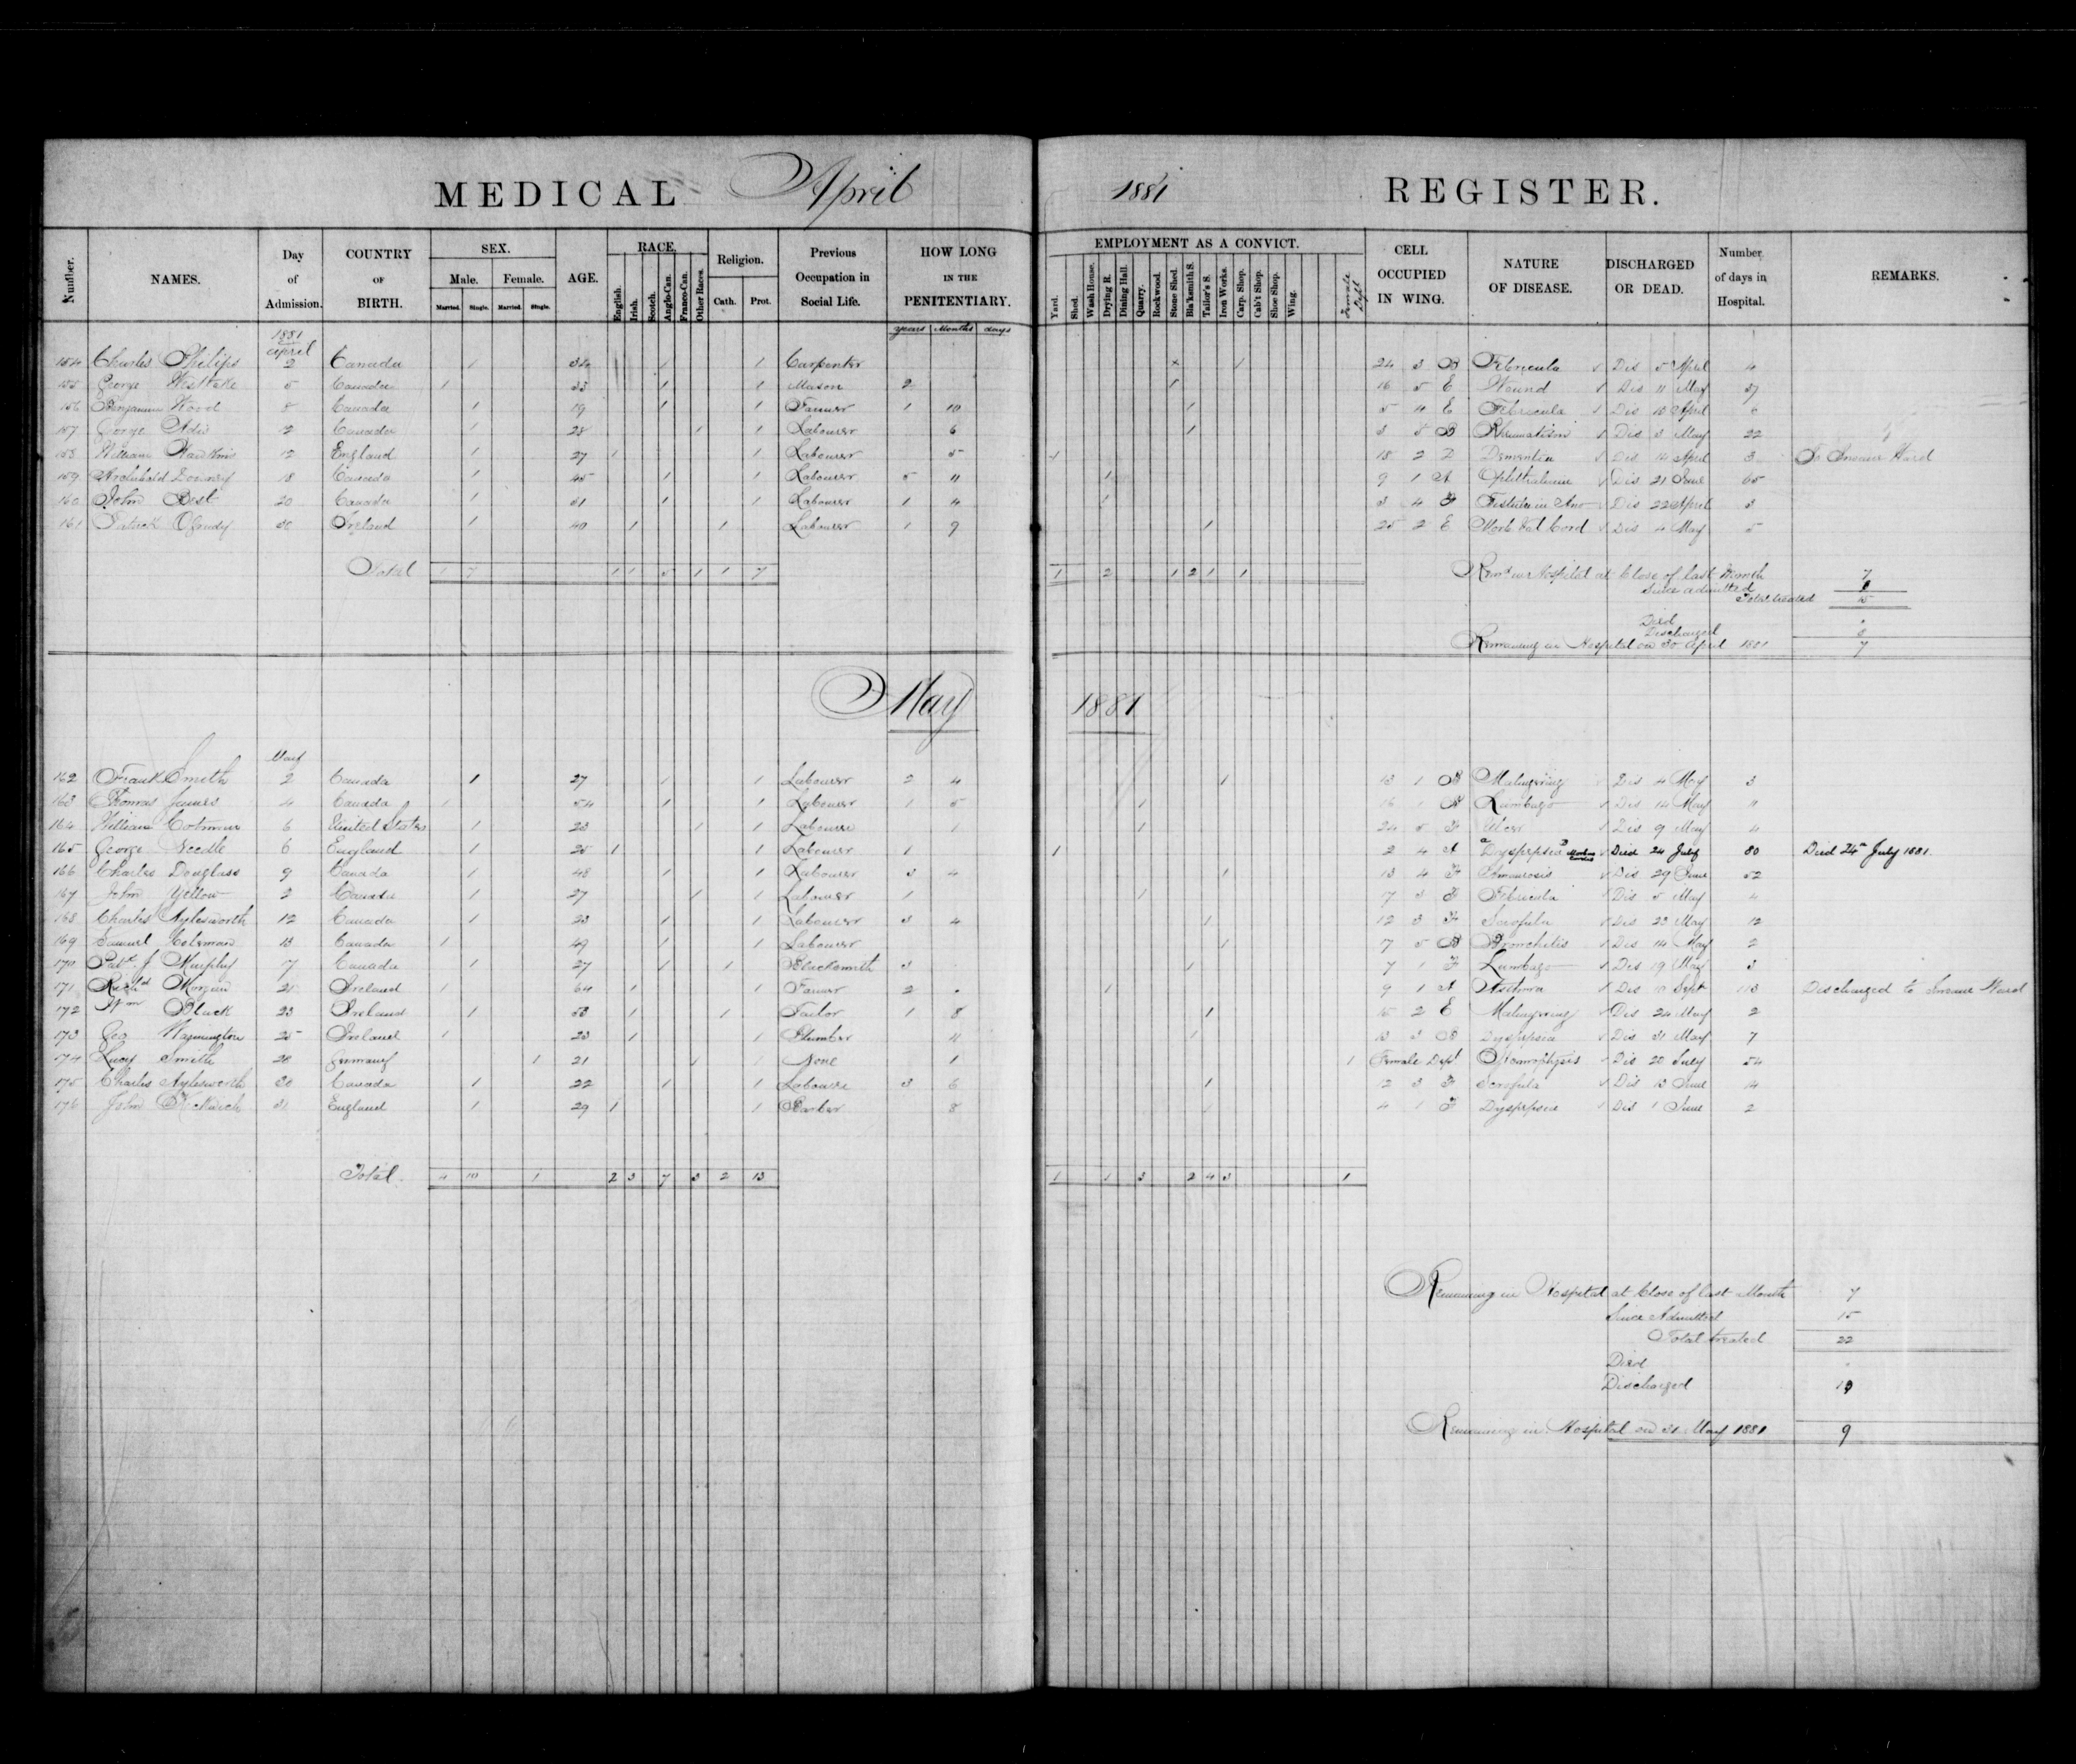 MEDICAL April 1881 REGISTER.
Number. NAMES. Day of Admission. COUNTRY OF BIRTH. SEX. Male. Female. Married. Single. Married. Single. AGE. RACE. English. Irish. Scotch. Anglo-Can. Franco-Can. Other Races. Religion. Cath. Prot. Previous Occupation in Social Life. HOW LONG IN THE PENITENTIARY. years Months days EMPLOYMENT AS A CONVICT. Yard. Shed. Wash House. Drying R. Dining Hall. Quarry. Rockwood. Stone Shed. Bla'ksmith S. Tailor's S. Iron Works. Carp. Shop. Cab't Shop. Shoe Shop. Wing. Female Dept CELL OCCUPIED IN WING. NATURE OF DISEASE. DISCHARGED OR DEAD. Number of days in Hospital. REMARKS.
1881
April
154 Charles Philips 2 Canada 1 34 1 1 Carpenter x 1 24 3 B Febricula Dis 5 April 4
155 George 5 Canada 1 33 1 1 Mason 2 1 16 5 E Wound Dis 11 May 37
156 Benjamin Wood 8 Canada 1 19 1 1 Farmer 1 10 1 5 4 E Febricula Dis April
157 George 12 Canada 1 28 1 1 Labourer 6 1 3 B Rheumatism Dis 3 May 22
158 William Hawkins 12 England 1 27 1 1 Labourer 5 1 18 2 Dementia Dis 14 April 3 To Insane Ward
159 Archibald 18 Canada 1 45 1 1 Labourer 5 11 1 9 1 A Ophthalmia Dis 21 June 65
160 John Best 20 Canada 1 51 1 1 Labourer 1 4 1 3 4 F Fistula in Ano Dis 22 April 3
161 Patrick OGrady 30 Ireland 1 40 1 1 Labourer 1 9 1 25 2 E Morb Val Cord Dis 4 May 5
Total 1 7 1 1 5 1 1 7 1 2 1 2 1 1
Hospital at Close of last Month 7
Since admitted 8
Total treated 15
Died
Discharged 8
Remaining in Hospital on 30 April 1881 7
May 1881
May
162 Frank Smith 2 Canada 1 27 1 1 Labourer 2 4 1 13 1 B Malingering Dis 4 May 3
163 Thomas James 4 Canada 1 54 1 1 Labourer 1 5 1 16 1 B Lumbago Dis 14 May 11
164 William 6 United States 1 23 1 1 Labourer 1 1 24 5 F Ulcer Dis 9 May 4
165 George Needle 6 England 1 25 1 1 Labourer 1 1 2 4 A Dyspepsia Morbus Cordis Died 24 July 80 Died 24th July 1881.
166 Charles Douglass 9 Canada 1 48 1 1 Labourer 3 4 1 13 4 F Amaurosis Dis 29 June 52
167 John Yellow 2 Canada 1 27 1 1 Labourer 1 1 7 3 F Febricula Dis 5 May 4
168 Charles Aylesworth 12 Canada 1 23 1 1 Labourer 3 4 1 12 3 F Scrofula Dis 23 May 12
169 Samuel Coleman 13 Canada 1 49 1 1 Labourer 1 7 5 B Bronchitis Dis 14 May 2
170 Patk J Murphy 17 Canada 1 27 1 1 Blacksmith 3 1 7 1 F Lumbago Dis 19 May 3
171 Richd Morgan 21 Ireland 1 64 1 1 Farmer 2 1 9 1 A Asthma Dis 10 Sept 113 Discharged to Insane Ward
172 Wm Black 23 Ireland 1 53 1 1 Tailor 1 8 1 15 2 E Malingering Dis 24 May 2
173 Geo Warmington 25 Ireland 1 23 1 1 Plumber 11 1 13 3 B Dyspepsia Dis 31 May 7
174 Lucy Smith 28 Germany 1 21 1 1 None 1 1 Female Dept Haemophysis Dis 20 July 54
175 Charles Aylesworth 30 Canada 1 22 1 1 Labourer 3 6 1 12 3 F Scrofula Dis 13 June 14
176 John 31 England 1 29 1 1 Barber 8 1 4 1 F Dyspepsia Dis 1 June 2
Total. 4 10 1 2 3 7 3 2 13 1 1 3 2 4 3 1
Remaining in Hospital at Close of last Month 7
Since Admitted 15
Total treated 22
Died
Discharged 13
Remaining in Hospital on 31 May 1881 9